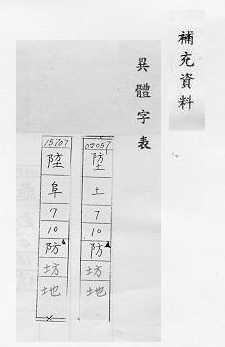 補充資料
異體字表
02057
埅
土
7
10
防
坊
地
15707
阜
7
10
防
坊
地